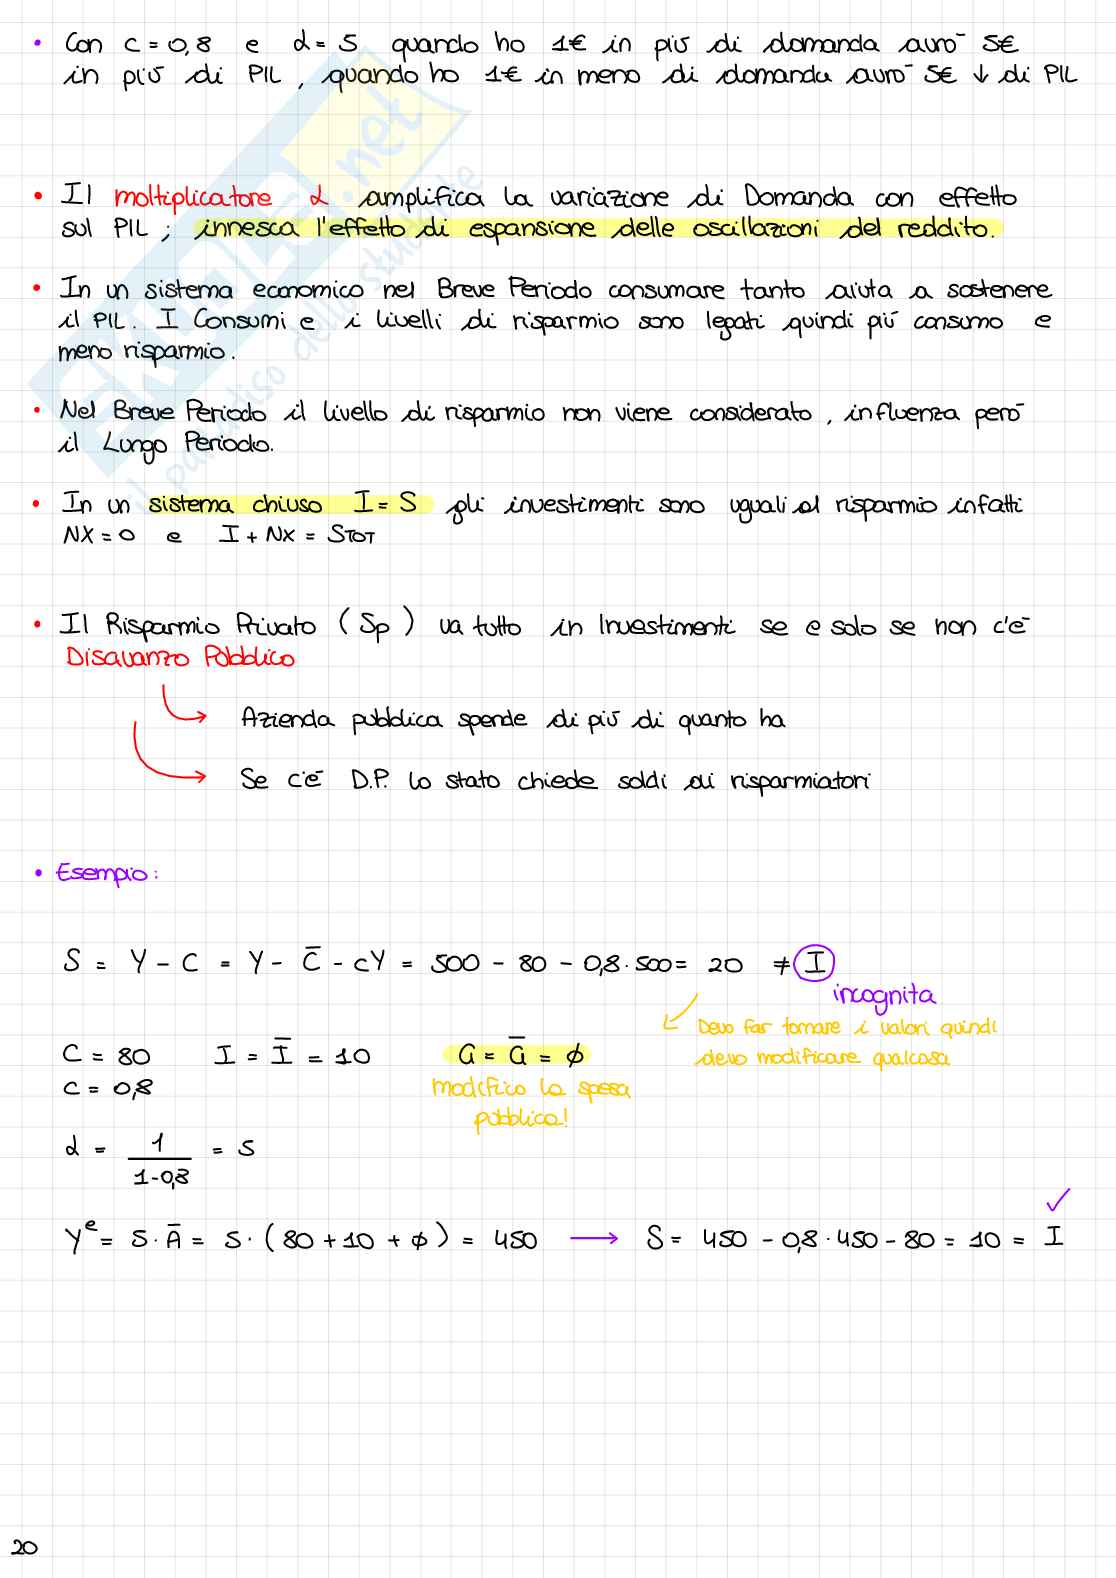 • Con c = 0,8 e α = 5 quando ho 1€ in più di domanda avrò 5€
in più di PIL, quando ho 1€ in meno di domanda avrò 5€ ↓ di PIL
• Il moltiplicatore α amplifica la variazione di Domanda con effetto
sul PIL; innesca l'effetto di espansione delle oscillazioni del reddito.
• In un sistema economico nel Breve Periodo consumare tanto aiuta a sostenere
il PIL. I Consumi e i livelli di risparmio sono legati quindi più consumo e
meno risparmio.
• Nel Breve Periodo il livello di risparmio non viene considerato, influenza però
il Lungo Periodo.
• In un sistema chiuso I = S gli investimenti sono uguali al risparmio infatti
NX = 0 e I + NX = STOT
• Il Risparmio Privato (Sp) va tutto in Investimenti se e solo se non c'è
Disavanzo Pubblico
Azienda pubblica spende di più di quanto ha
Se c'è D.P. lo stato chiede soldi ai risparmiatori
• Esempio:
S = Y - C = Y - C̅ - cY = 500 - 80 - 0,8 · 500 = 20 ≠ I
incognita
Devo far tornare i valori quindi
devo modificare qualcosa
C = 80 I = I̅ = 10 G = G̅ = ϕ
c = 0,8
modifico la spesa
pubblica!
α = 1/(1-0,8) = 5
Yᵉ = 5 · A̅ = 5 · (80 + 10 + ϕ) = 450 → S = 450 - 0,8 · 450 - 80 = 10 = I ✓
20
SKUOLA.net
il paradiso dello studente